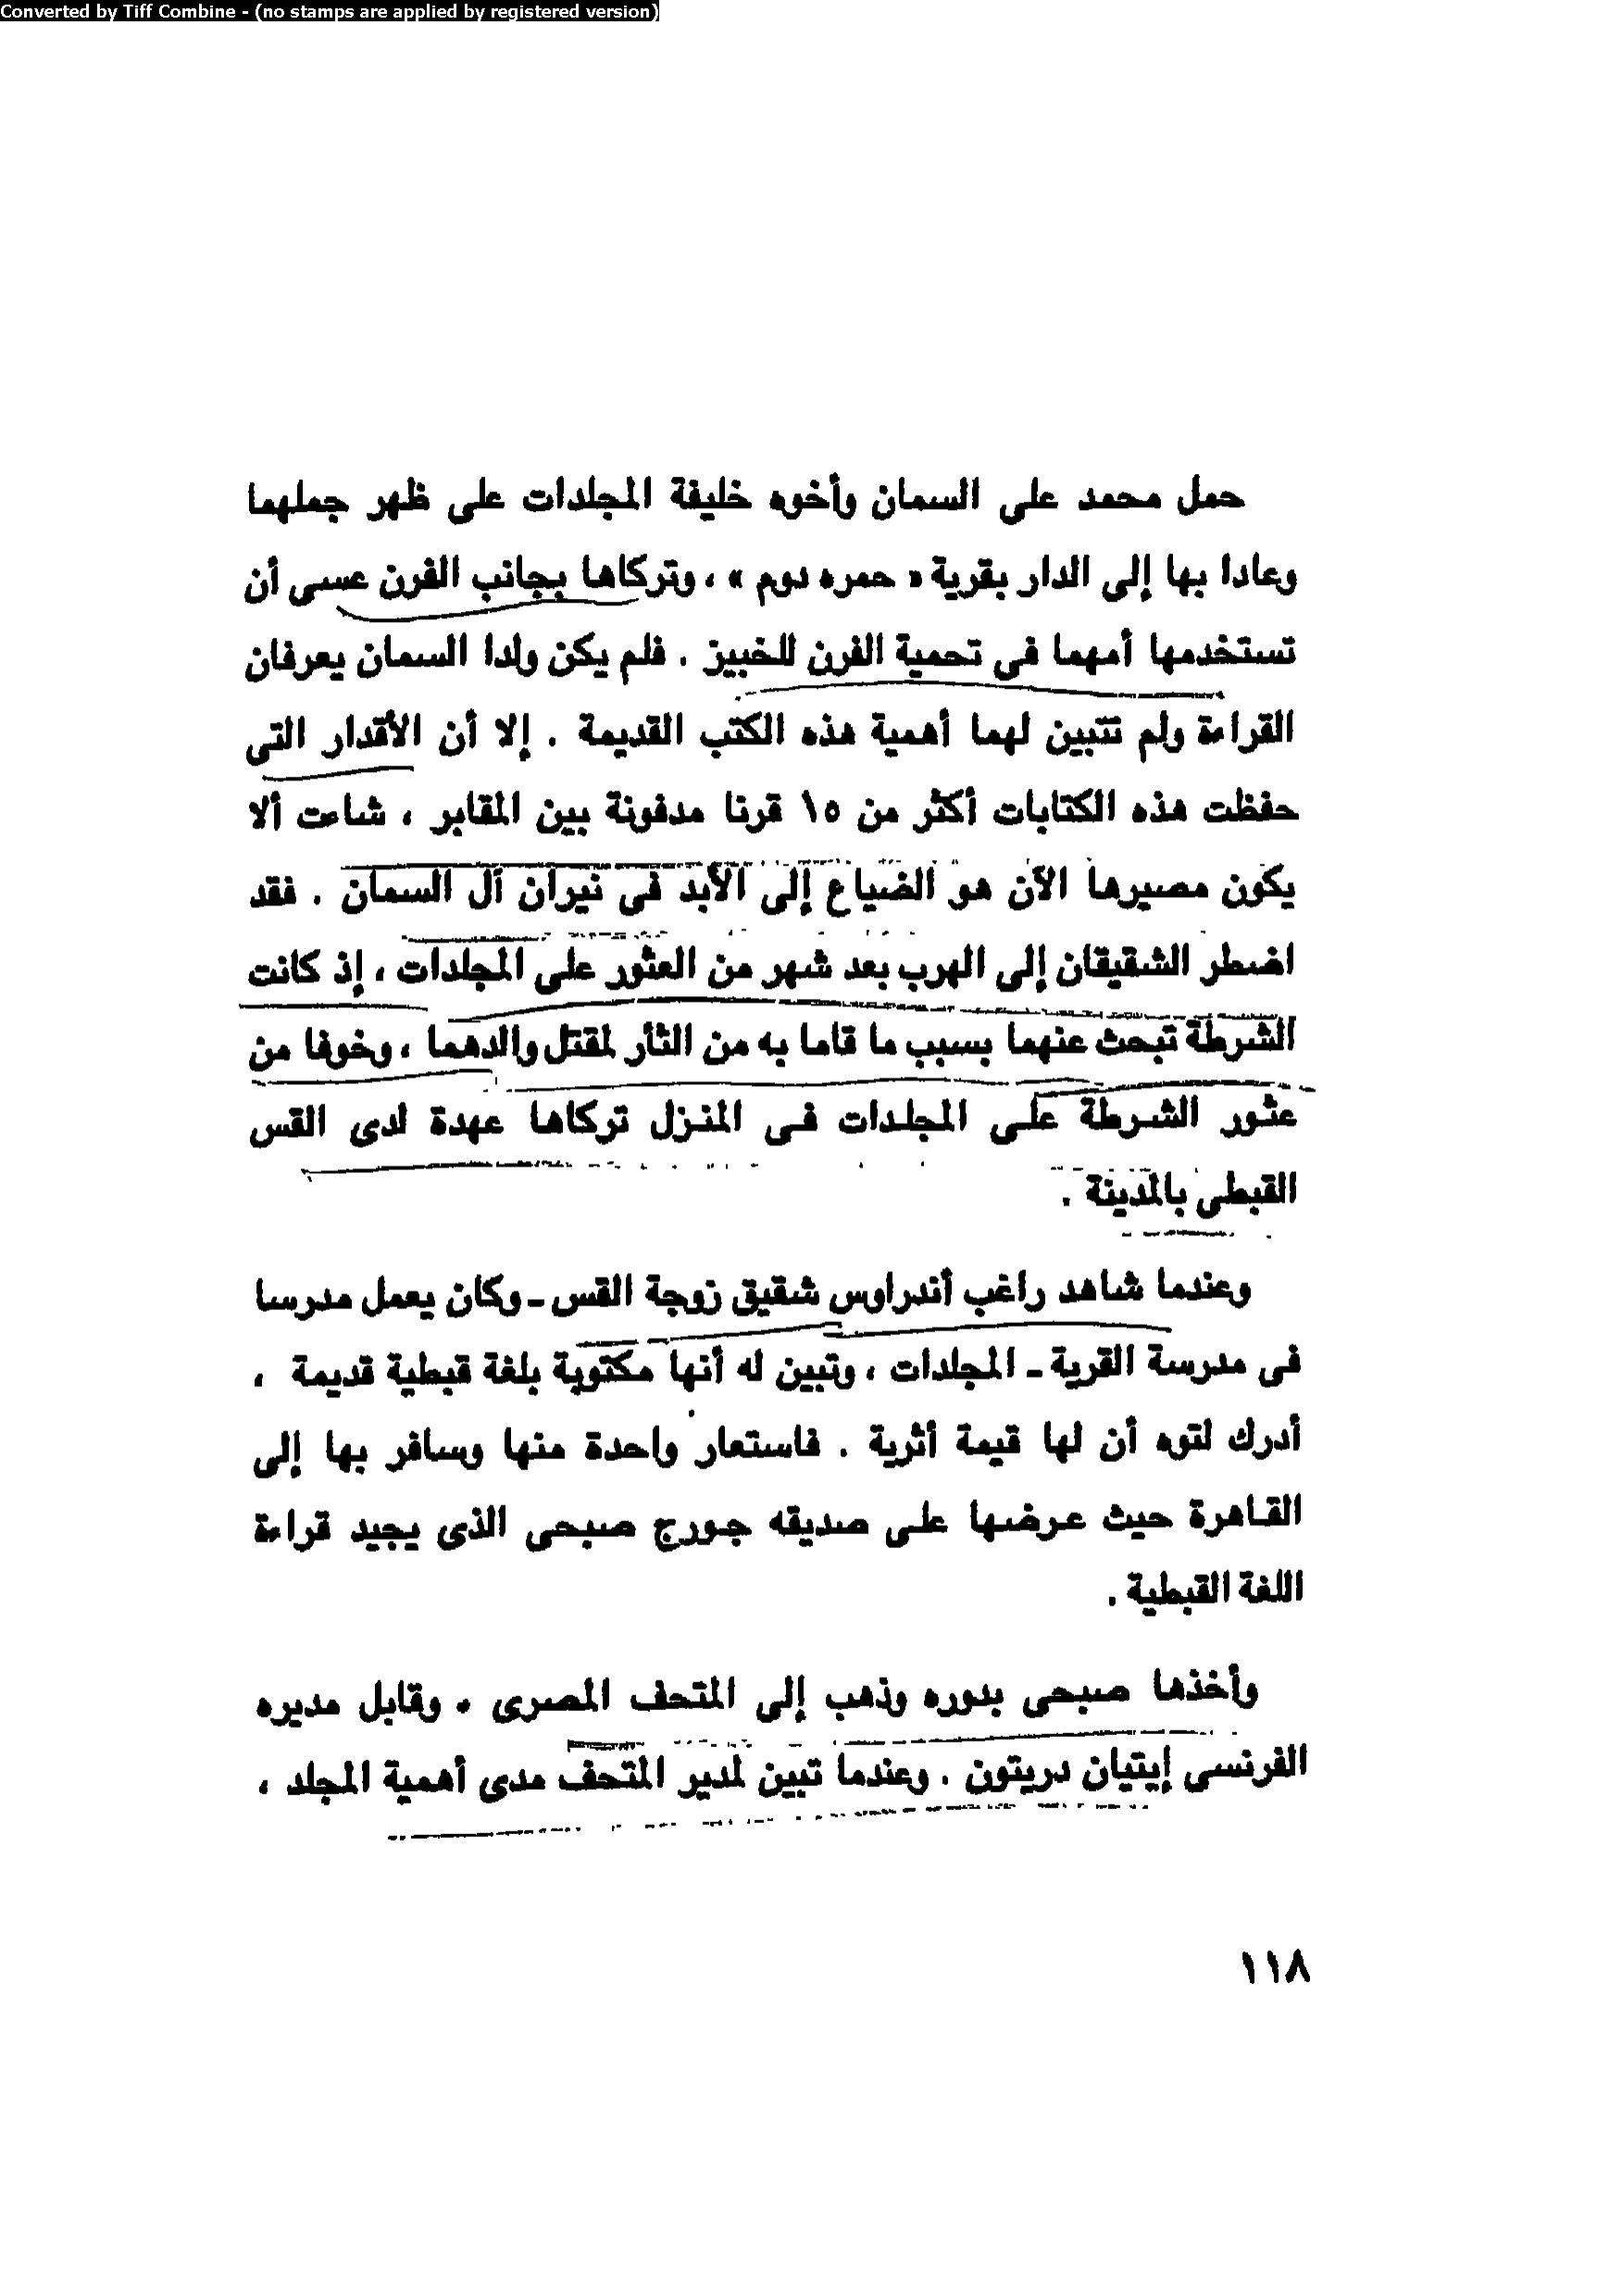 Converted by Tiff Combine - (no stamps are applied by registered version)
حمل محمد على السمان وأخوه خليفة المجلدات على ظهر جملهما
وعادا بها إلى الدار بقرية « حمره دوم » ، وتركاها بجانب الفرن عسى أن
تستخدمها أمهما فى تحمية الفرن للخبيز . فلم يكن ولدا السمان يعرفان
القراءة ولم تتبين لهما أهمية هذه الكتب القديمة . إلا أن الأقدار التى
حفظت هذه الكتابات أكثر من ١٥ قرنا مدفونة بين المقابر ، شاءت ألا
يكون مصيرها الآن هو الضياع إلى الأبد فى نيران آل السمان . فقد
اضطر الشقيقان إلى الهرب بعد شهر من العثور على المجلدات ، إذ كانت
الشرطة تبحث عنهما بسبب ما قاما به من الثأر لمقتل والدهما ، وخوفا من
عثور الشرطة على المجلدات فى المنزل تركاها عهدة لدى القس
القبطى بالمدينة .
وعندما شاهد راغب أندراوس شقيق زوجة القس - وكان يعمل مدرسا
فى مدرسة القرية - المجلدات ، وتبين له أنها مكتوبة بلغة قبطية قديمة ،
أدرك لتوه أن لها قيمة أثرية . فاستعار واحدة منها وسافر بها إلى
القاهرة حيث عرضها على صديقه جورج صبحى الذى يجيد قراءة
اللغة القبطية .
وأخذها صبحى بدوره وذهب إلى المتحف المصرى . وقابل مديره
الفرنسى إيتيان دريتون . وعندما تبين لمدير المتحف مدى أهمية المجلد ،
١١٨